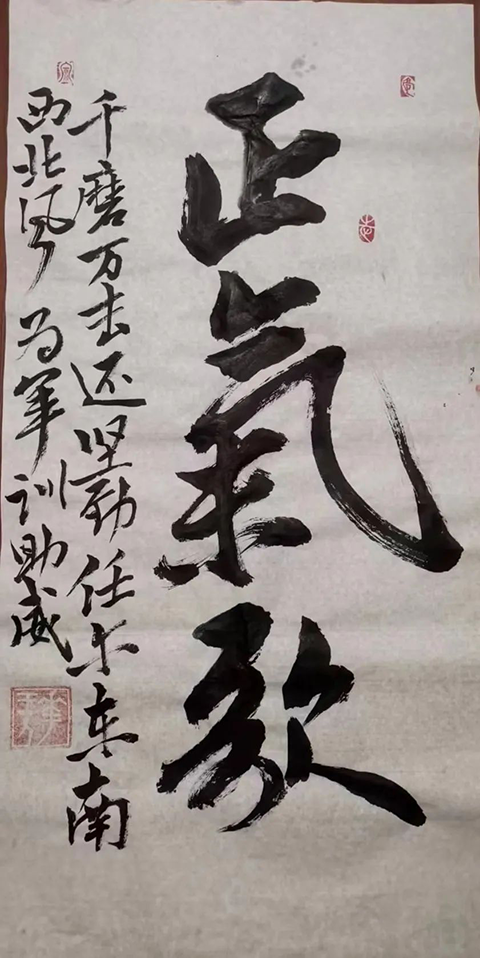 正氣歌
千磨万击还坚劲任尔东南
西北风为军训助威